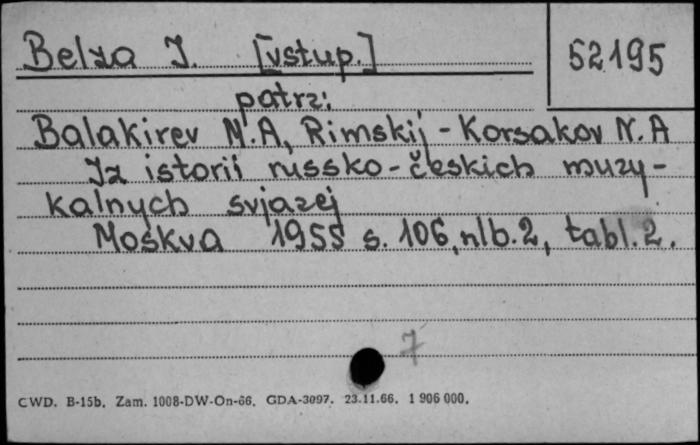 Belza I. [wstup.]
52195
patrz:
Balakirev M.A, Rimskij-Korsakov N.A
Iz istorii russko-českich muzy-
kalnych svjazej
Moskva 1955 s. 106, nlb.2, tabl.2.
7
CWD. B-15b. Zam. 1008-DW-On-66. GDA-3097. 23.11.66. 1 906 000.